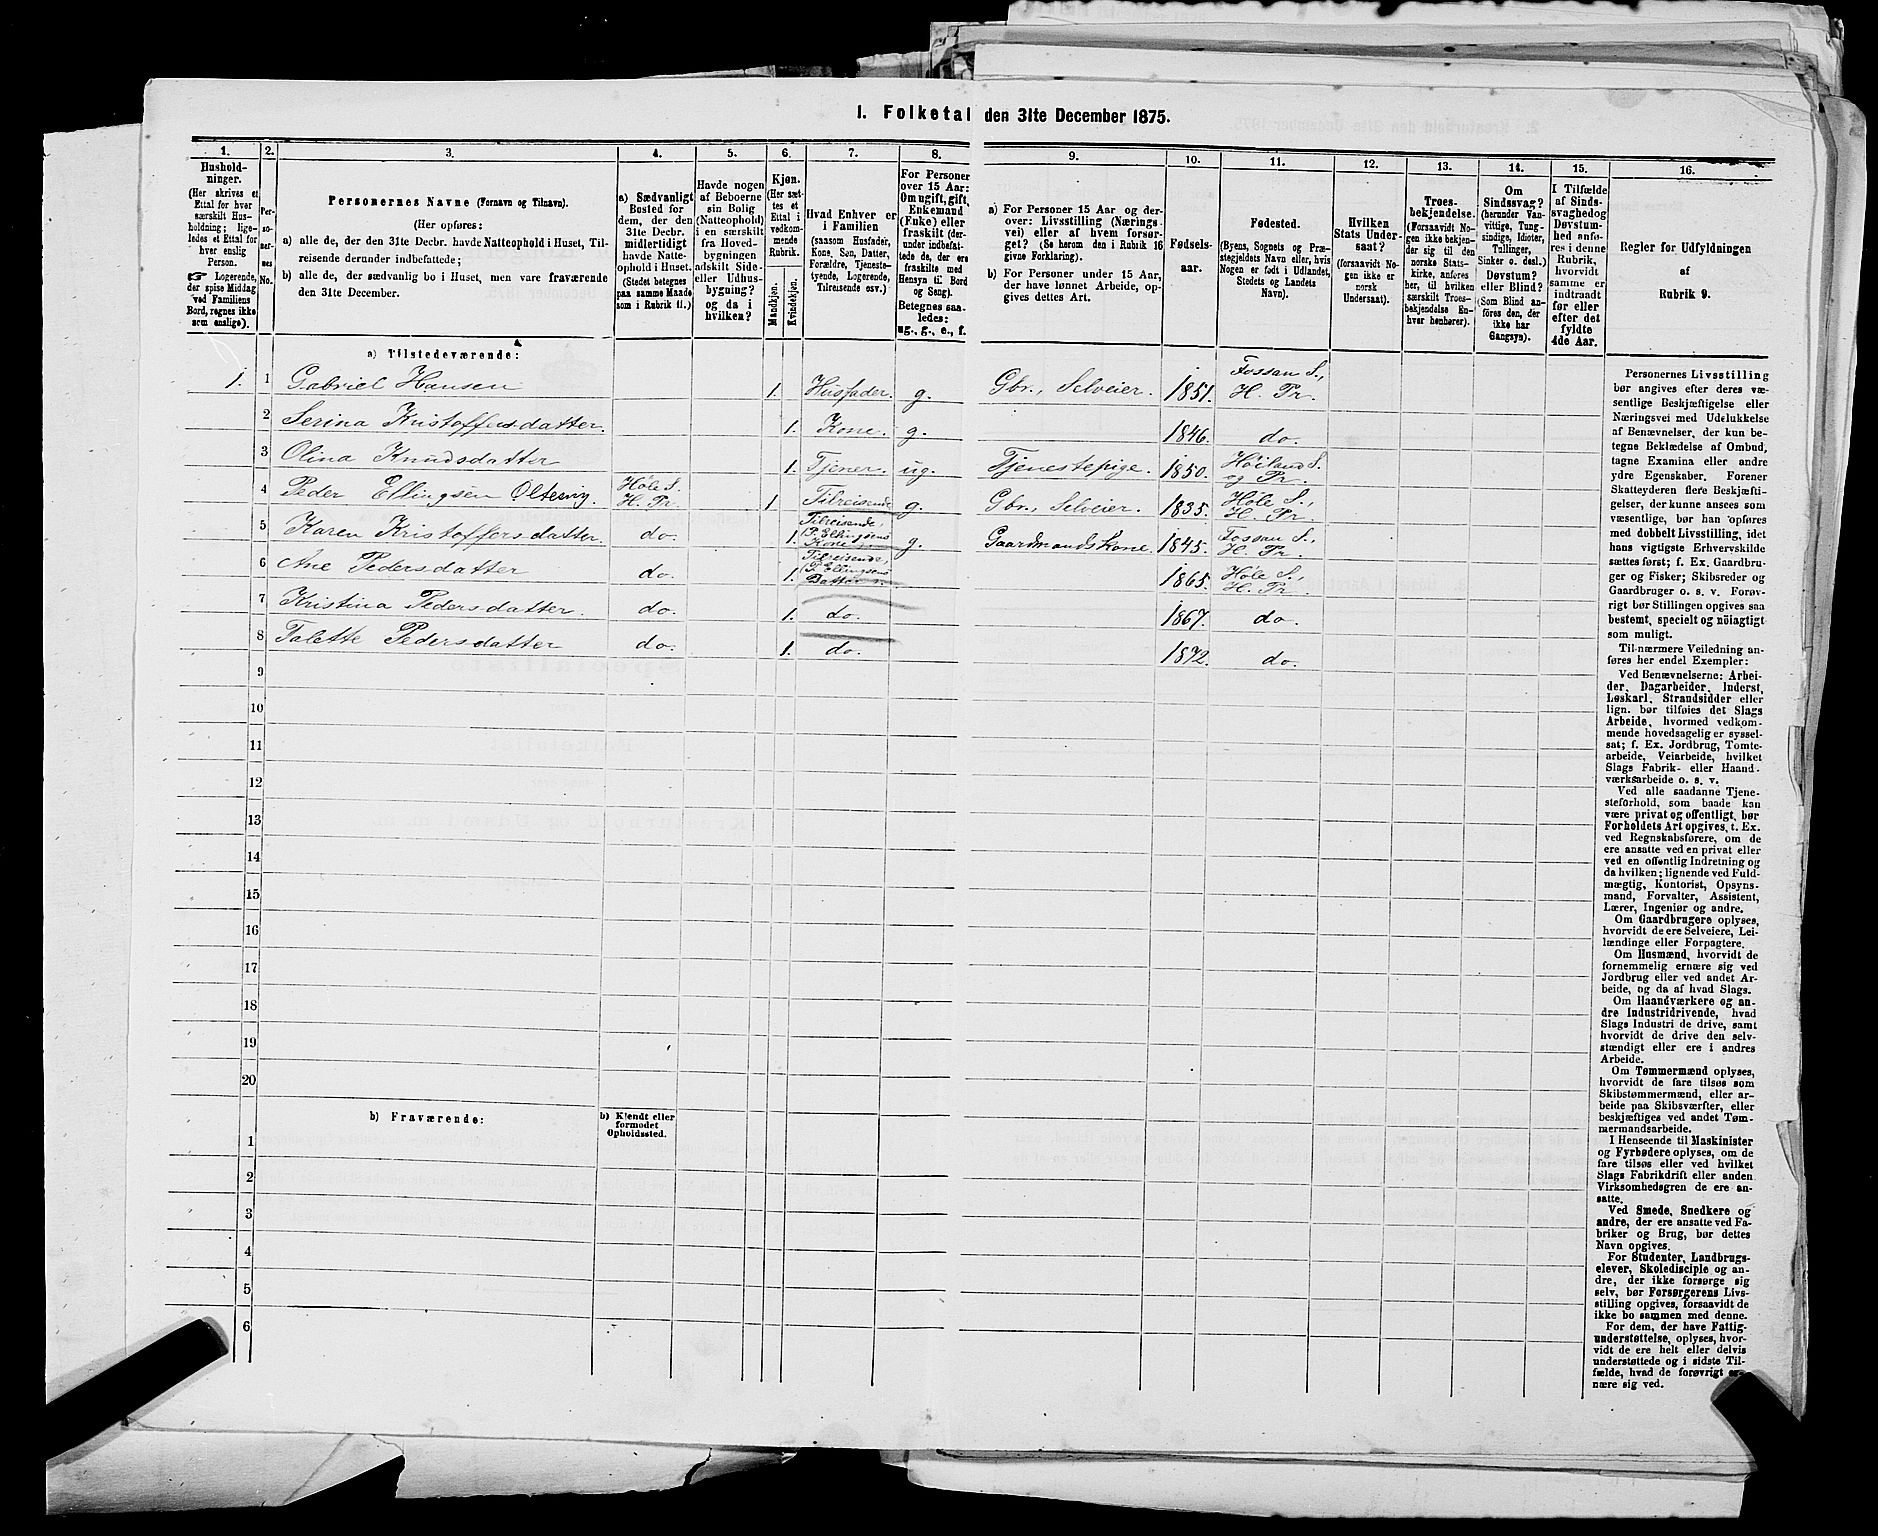 I. Folketal den 31te December 1875.
1. 2. 3. 4. 5. 6. 7. 8. 9. 10. 11. 12. 13. 14. 15. 16.
Hushold-
ninger.
(Her skrives et
Ettal for hver
særskilt Hus-
holdning; lige-
ledes et Ettal for
hver enslig
Person.
☞ Logerende,
der spise Middag
ved Familiens
Bord, regnes ikke
som enslige).
Per-
so-
ner-
nes
No.
Personernes Navne (Fornavn og Tilnavn).
(Her opføres:
a) alle de, der den 31te Decbr. havde Natteophold i Huset, Til-
reisende derunder indbefattede;
b) alle de, der sædvanlig bo i Huset, men vare fraværende
den 31te December.
a) Sædvanligt
Bosted for
dem, der den
31te Decbr.
midlertidigt
havde Natte-
ophold i Huset.
(Stedet betegnes
paa samme Maade
som i Rubrik 11.)
Havde nogen
af Beboerne
sin Bolig
(Natteophold)
i en særskilt
fra Hoved-
bygningen
adskilt Side-
eller Udhus-
bygning?
og da i
hvilken?
Kjøn.
(Her sæt-
tes et
Ettal i
vedkom-
mende
Rubrik.
Mandkjøn.
Kvindekjøn.
Hvad Enhver er
i Familien
(saasom Husfader,
Kone, Søn, Datter,
Forældre, Tjeneste-
tyende, Logerende,
Tilreisende osv.)
For Personer
over 15 Aar:
Om ugift, gift,
Enkemand
(Enke) eller
fraskilt (der-
under indbefat-
tede de, der ere
fraskilte med
Hensyn til Bord
og Seng).
Betegnes saa-
ledes:
ug., g., e., f.
a) For Personer 15 Aar og der-
over: Livsstilling (Nærings-
vei) eller af hvem forsør-
get? (Se herom den i Rubrik 16
givne Forklaring).
b) For Personer under 15 Aar,
der have lønnet Arbeide, op-
gives dettes Art.
Fødsels-
aar.
Fødested.
(Byens, Sognets og Præ-
stegjeldets Navn eller, hvis
Nogen er født i Udlandet,
Stedets og Landets
Navn).
Hvilken
Stats Under-
saat?
(forsaavidt No-
gen ikke er
norsk
Undersaat).
Troes-
bekjendelse.
(Forsaavidt No-
gen ikke bekjen-
der sig til den
norske Stats-
kirke, anføres
her, til hvilken
særskilt Troes-
bekjendelse En-
hver henhører).
Om
Sindssvag?
(herunder Van-
vittige, Tung-
sindige, Idioter,
Tullinger,
Sinker o. desl.)
Døvstum?
eller Blind?
(Som Blind an-
føres den, der
ikke har
Gangsyn).
I Tilfælde
af Sinds-
svaghed og
Døvstum-
hed anfø-
res i denne
Rubrik,
hvorvidt
samme er
indtraadt
før eller
efter det
fyldte
4de Aar.
Regler for Udfyldningen
af
Rubrik 9.
a) Tilstedeværende:
1. 1 Gabriel Hansen 1. Husfader. g. Gbr., Selveier. 1851. Fossan S., H. Pr.
2 Serina Kristoffersdatter. 1. Kone. g. 1846. do.
3 Olina Knudsdatter 1. Tjener. ug. Tjenestepige. 1850. Høiland S. og Pr.
4 Peder Ellingsen Oltesvig. Høle S. H. Pr. 1 Tilreisende g. Gbr., Selveier. 1835. Høle S., H. Pr.
5 Karen Kristoffersdatter. do. 1. Tilreisende, P. Ellingsens Kone g. Gaardmandskone. 1845. Fossan S., H. Pr.
6 Ane Pedersdatter do. 1. Tilreisende, P. Ellingsens Datter 1865. Høle S., H. Pr.
7 Kristina Pedersdatter. do. 1. do. 1867. do.
8 Talette Pedersdatter do. 1. do. 1872. do.
9
10
11
12
13
14
15
16
17
18
19
20
b) Fraværende:
b) Kjendt eller
formodet
Opholdssted.
1
2
3
4
5
6
Personernes Livsstilling
bør angives efter deres væ-
sentlige Beskjæftigelse eller
Næringsvei med Udelukkelse
af Benævnelser, der kun be-
tegne Beklædelse af Ombud,
tagne Examina eller andre
ydre Egenskaber. Forener
Skatteyderen flere Beskjæfti-
gelser, der kunne ansees som
væsentlige, bør han opføres
med dobbelt Livsstilling, idet
hans vigtigste Erhvervskilde
sættes først; f. Ex. Gaardbru-
ger og Fisker; Skibsreder og
Gaardbruger o. s. v. Forøv-
rigt bør Stillingen opgives saa
bestemt, specielt og nöiagtigt
som muligt.
Til nærmere Veiledning an-
føres her endel Exempler:
Ved Benævnelserne: Arbei-
der, Dagarbeider, Inderst,
Løskarl, Strandsidder eller
lign. bør tilføies det Slags
Arbeide, hvormed vedkom-
mende hovedsagelig er syssel-
sat; f. Ex. Jordbrug, Tomte-
arbeide, Veiarbeide, hvilket
Slags Fabrik- eller Haand-
værksarbeide o. s. v.
Ved alle saadanne Tjene-
steforhold, som baade kan
være privat og offentligt, bør
Forholdets Art opgives, t. Ex.
ved Regnskabsførere, om de
ere ansatte ved en privat eller
ved en offentlig Indretning og
da hvilken; lignende ved Fuld-
mægtig, Kontorist, Opsyns-
mand, Forvalter, Assistent,
Lærer, Ingeniør og andre.
Om Gaardbrugere oplyses,
hvorvidt de ere Selveiere, Lei-
lændinge eller Forpagtere.
Om Husmænd, hvorvidt de
fornemmelig ernære sig ved
Jordbrug eller ved andet Ar-
beide, og da af hvad Slags.
Om Haandværkere og an-
dre Industridrivende, hvad
Slags Industri de drive, samt
hvorvidt de drive den selv-
stændigt eller ere i andres
Arbeide.
Om Tømmermænd oplyses,
hvorvidt de fare tilsøs som
Skibstømmermænd, eller ar-
beide paa Skibsværfter, eller
beskjæftiges ved andet Tøm-
mermandsarbeide.
I Henseende til Maskinister
og Fyrbødere oplyses, om de
fare tilsøs eller ved hvilket
Slags Fabrikdrift eller anden
Virksomhedsgren de ere an-
satte.
Ved Smede, Snedkere og
andre, der ere ansatte ved Fa-
briker og Brug, bør dettes
Navn opgives.
For Studenter, Landbrugs-
elever, Skoledisciple og an-
dre, der ikke forsørge sig
selv, bør Forsørgerens Livs-
stilling opgives, forsaavidt de
ikke bo sammen med denne.
For dem, der have Fattig-
understøttelse, oplyses, hvor-
vidt de ere helt eller delvis
understøttede og i sidste Til-
fælde, hvad de forøvrigt er-
nære sig ved.